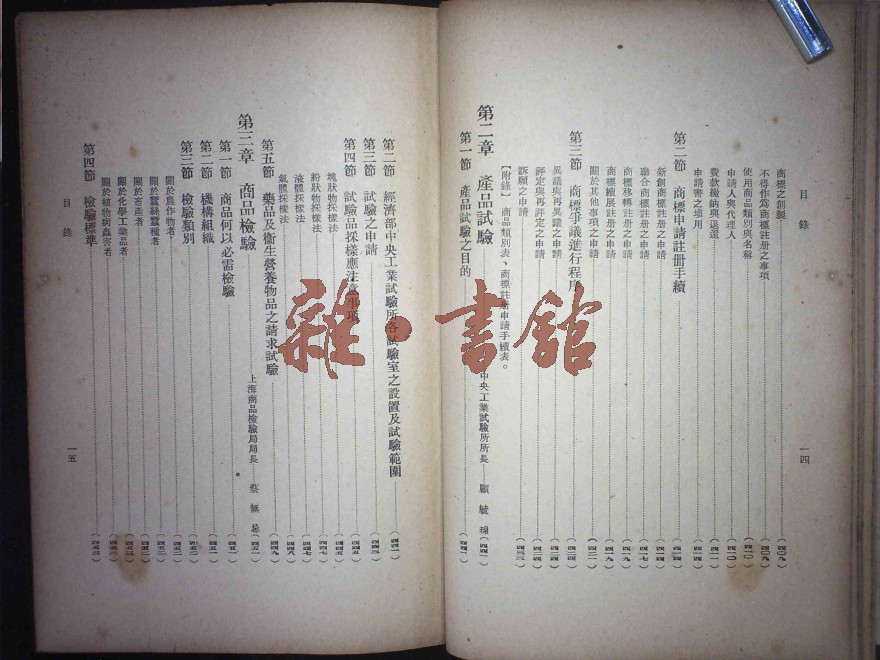 目錄
一四
商標之創製
不得作爲商標註册之事項
使用商品類別與名稱
申請人與代理人
費款繳納與退還
申請書之填用
第二節 商標申請註册手續
新創商標註册之申請
聯合商標註册之申請
商標移轉註册之申請
商標續展註册之申請
關於其他事項之申請
第三節 商標爭議進行程序
異議與再異議之申請
評定與再評定之申請
訴願之申請
【附錄】商品類別表、商標註册申請手續表。
第二章 產品試驗 中央工業試驗所所長 顧毓瑔
第一節 產品試驗之目的
第二節 經濟部中央工業試驗所各試驗室之設置及試驗範圍
第三節 試驗之申請
第四節 試驗品採樣應注意事項
塊狀物採樣法
粉狀物採樣法
液體採樣法
氣體採樣法
第五節 藥品及衞生營養物品之請求試驗
第三章 商品檢驗 上海商品檢驗局局長 蔡無忌
第一節 商品何以必需檢驗
第二節 機構組織
第三節 檢驗類別
關於農作物者
關於蠶絲蠶種者
關於畜產者
關於化學工業品者
關於植物病蟲害者
第四節 檢驗標準
目錄
一五
雜·書館